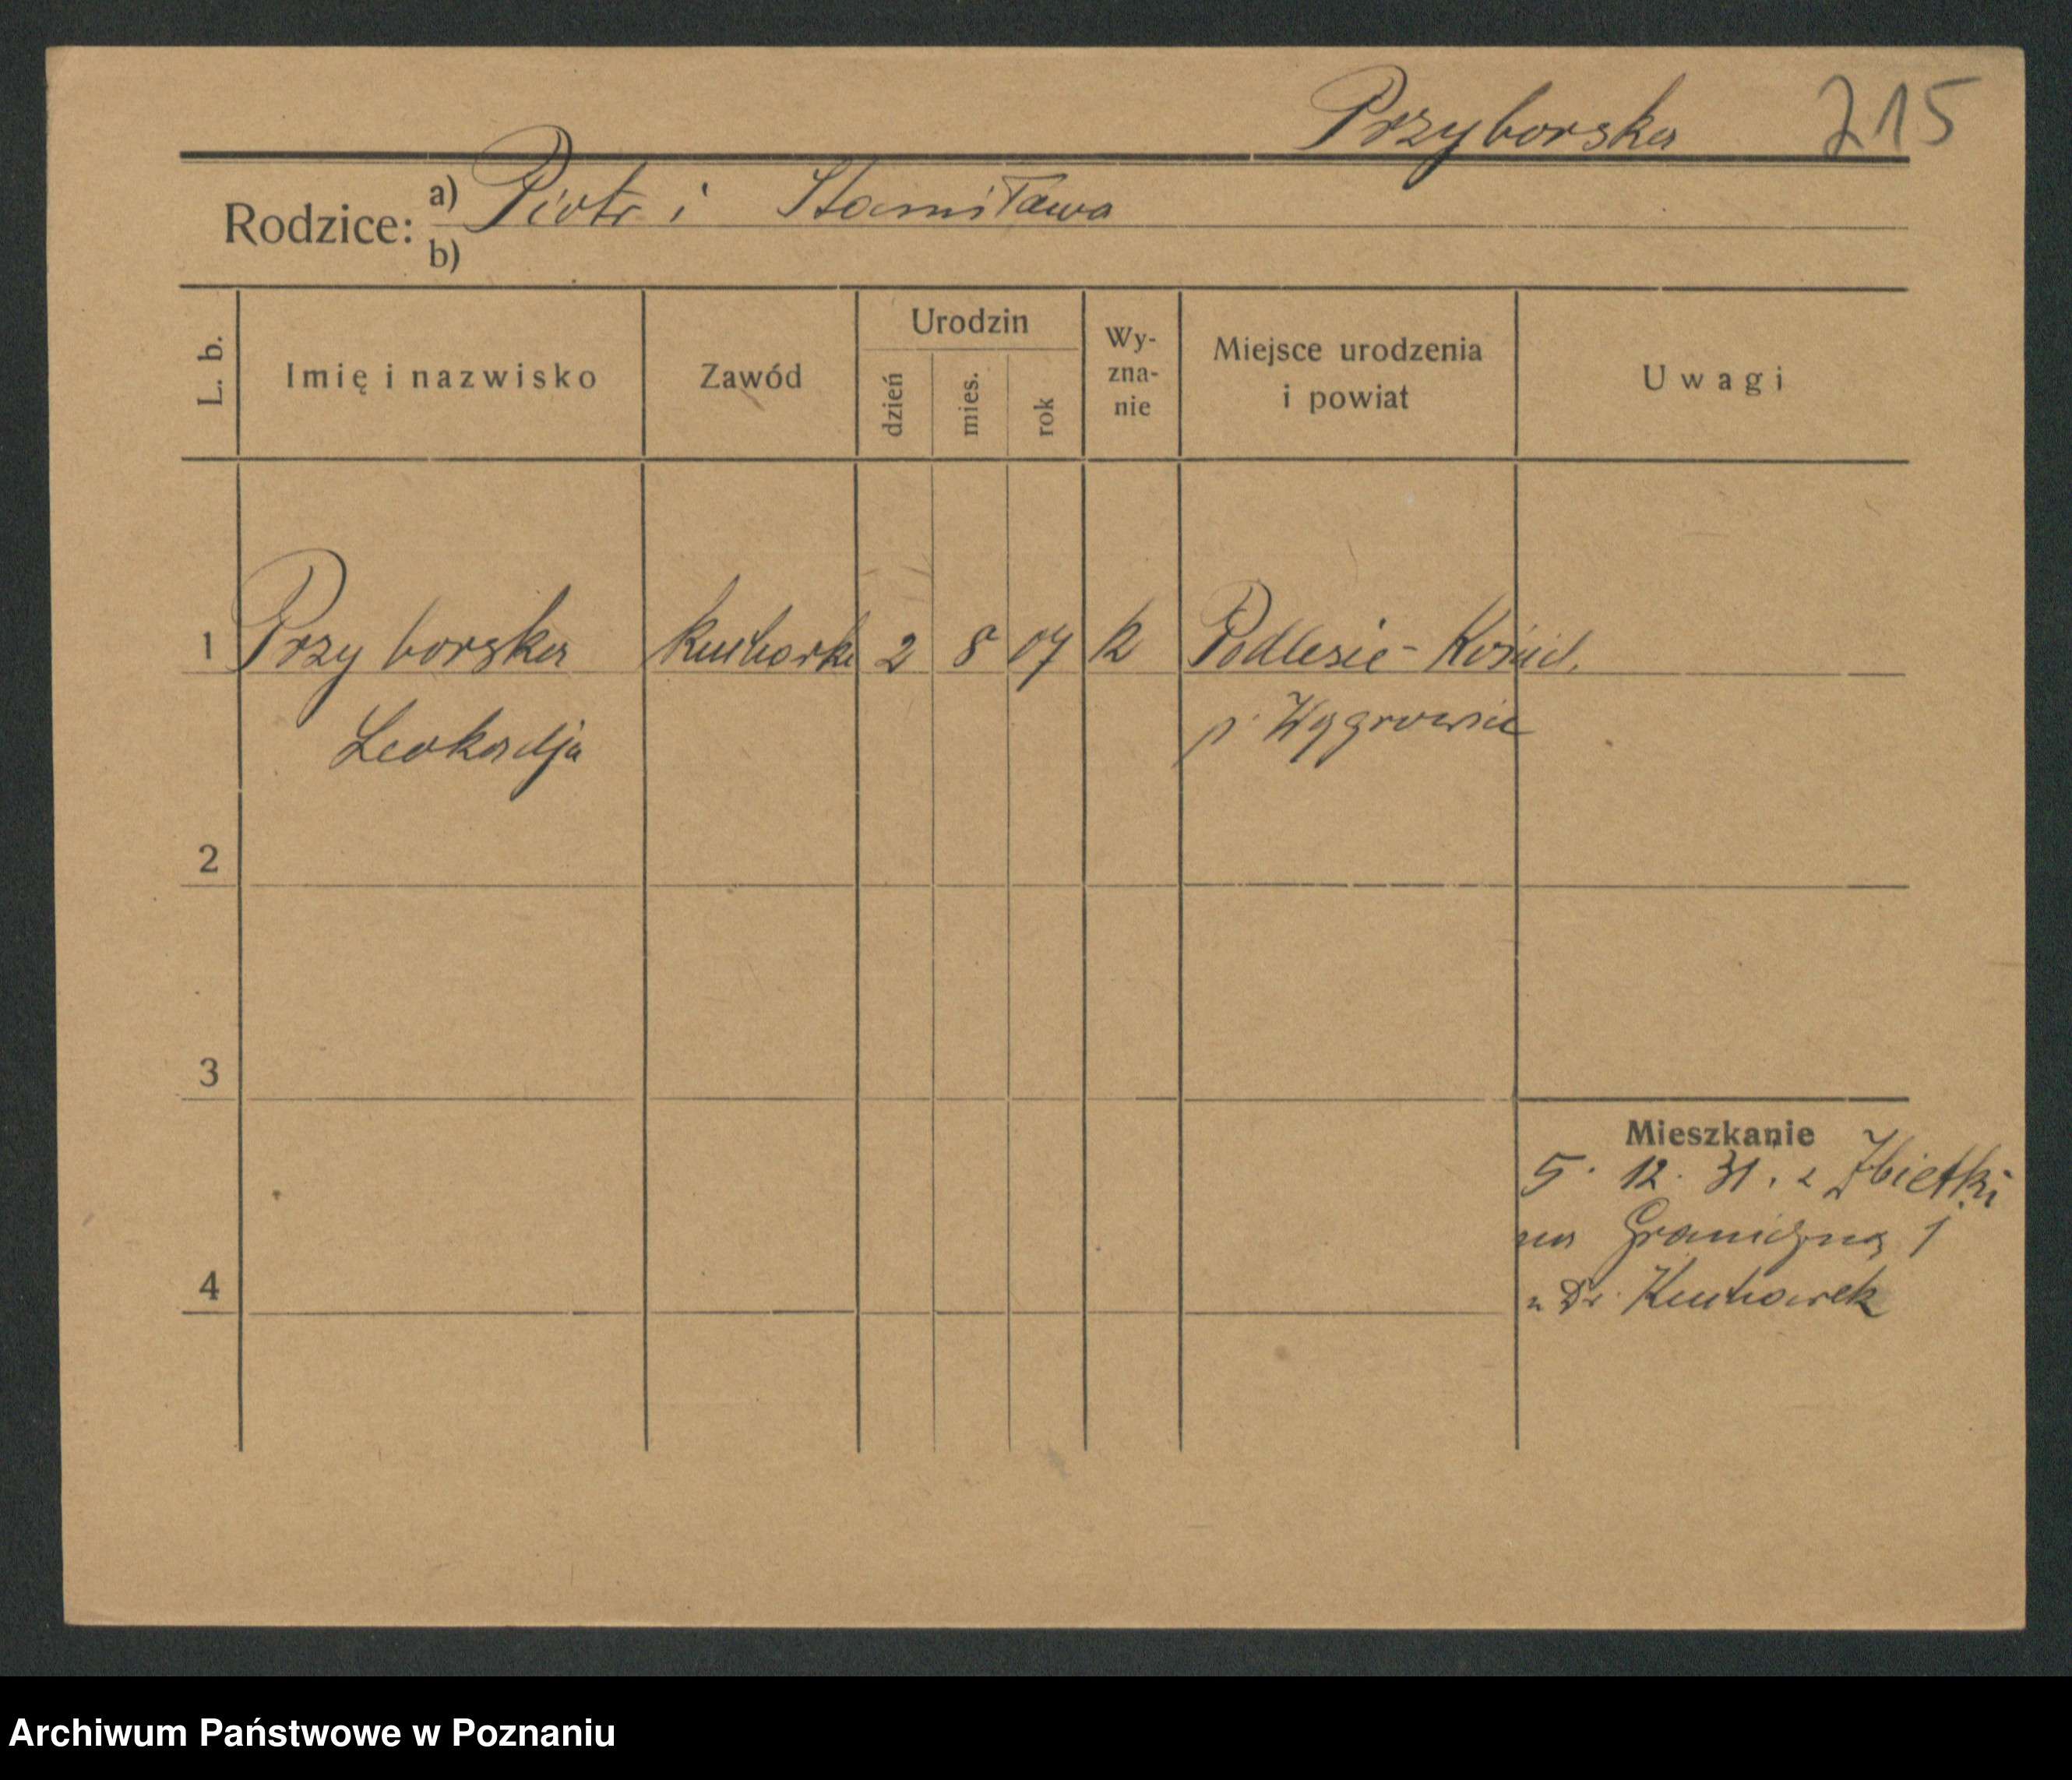 Przyborska 215
Rodzice: a) Piotr i Stanisława
b)
L. b. Imię i nazwisko Zawód Urodzin dzień mies. rok Wy-zna-nie Miejsce urodzenia i powiat Uwagi
1 Przyborska kucharka 2 8 07 k Podlesie-Kościel.
Leokadja p. Wągrowiec
2
3
Mieszkanie
5. 12. 31. z Zbietki
na Graniczną 1
4
u Dr. Kucharek
Archiwum Państwowe w Poznaniu